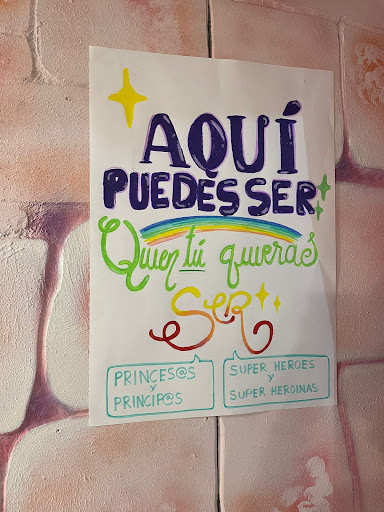 AQUÍ
PUEDES SER
Quien tú quieras
SER
PRINCES@S
Y
PRINCIP@S
SUPER HEROES
Y
SUPER HEROINAS